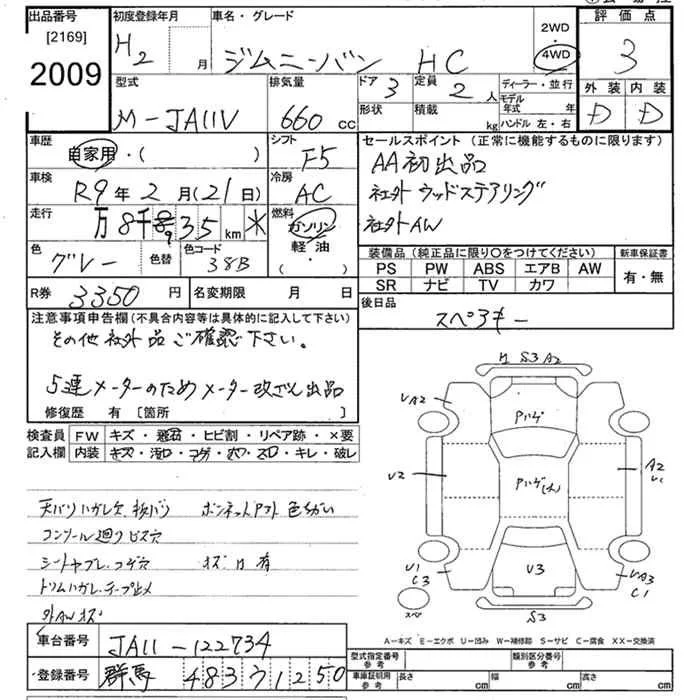 出品番号 初度登録年月 車名・グレード 2WD 評価点
[2169] H2 月 ジムニーバン HC 4WD 3
2009
型式 排気量 ドア 3 定員 2 人 ディーラー・並行 外装 内装
M-JA11V 660 cc 形状 積載 kg モデル年式 年 D D
ハンドル 左・右
車歴 自家用・( ) シフト F5 セールスポイント (正常に機能するものに限ります)
車検 R9年2月(21日) 冷房 AC AA初出品
社外ウッドステアリング
走行 万8千935km 燃料 ガソリン 社外AW
軽油
・( )
色 グレー 色替 色コード 38B
装備品 (純正品に限り○をつけてください) 新車保証書
PS PW ABS エアB AW 有・無
SR ナビ TV カワ
R券 3350円 名変期限 月 日 後日品
スペアキー
注意事項申告欄(不具合内容等は具体的に記入して下さい)
その他社外品ご確認下さい。
5連メーターのためメーター改ざん出品
修復歴 有 [箇所 ]
検査員 FW キズ・飛石・ヒビ割・リペア跡・×要
記入欄 内装 キズ・汚ロ・コゲ・ホツ・スロ・キレ・破レ
S3 A2
UA2 Pハゲ
U2 Pハゲ(大) A2
U1
U1 U3 UA3
C3 C1
スペ S3
天バリハガレ穴 ボンネットアフト 色ちがい
コンソール廻りビス穴
シートヤブレ.コゲ穴 有
トリムハガレ.テープ止メ
外AWキズ
A-キズ E-エクボ U-凹み W-補修跡 S-サビ C-腐食 XX-交換済
車台番号 JA11-122734 型式指定番号 参考 類別区分番号 参考
登録番号 群馬 483 7 1250 車庫証明用 参考 長さ cm 幅 cm 高さ cm